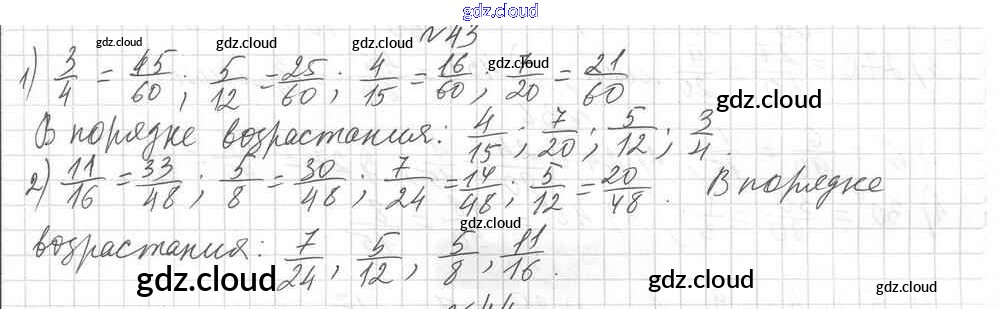 gdz.cloud
№43
gdz.cloud gdz.cloud gdz.cloud
1) 3/4 = 45/60; 5/12 = 25/60; 4/15 = 16/60; 7/20 = 21/60
gdz.cloud
gdz.cloud
В порядке возрастания: 4/15; 7/20; 5/12; 3/4.
2) 11/16 = 33/48; 5/8 = 30/48; 7/24 = 14/48; 5/12 = 20/48. В порядке
gdz.cloud
возрастания: 7/24, 5/12, 5/8, 11/16.
gdz.cloud gdz.cloud gdz.cloud
№44